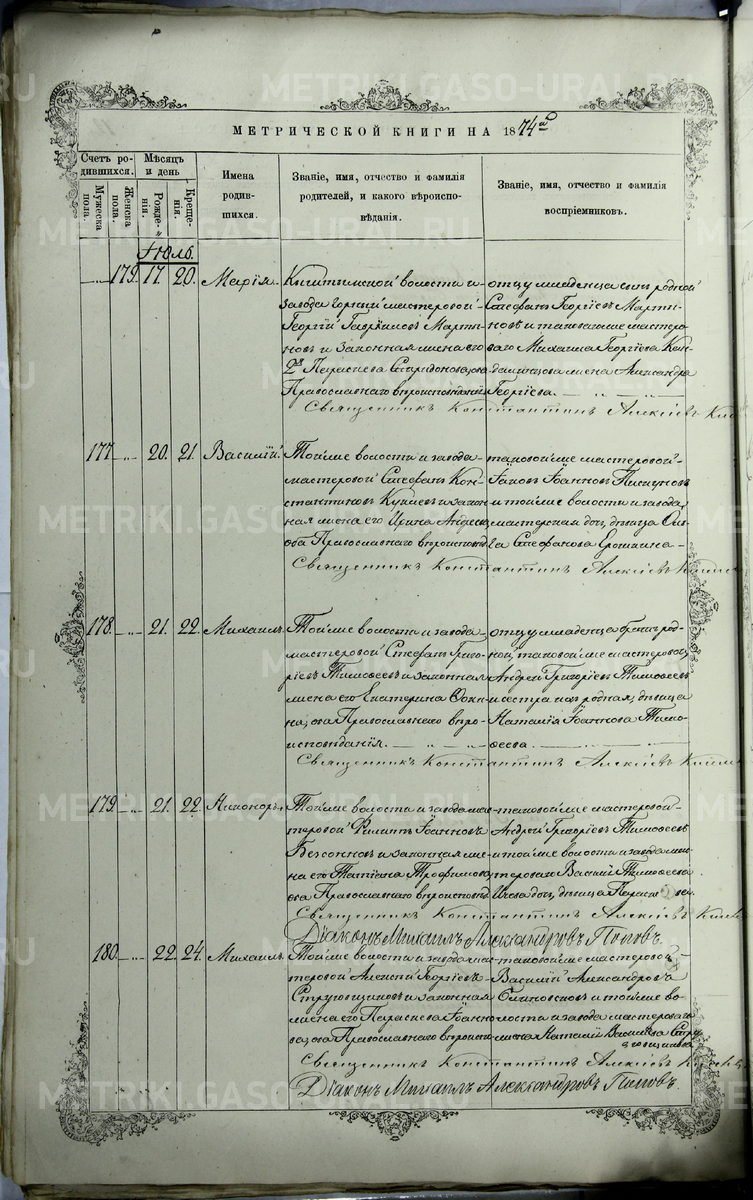 МЕТРИЧЕСКОЙ КНИГИ НА 1874й
Счетъ родившихся.
Мужеска пола.
Женска пола.
Мѣсяцъ и день
Рожденія.
Крещенія.
Имена родившихся.
Званіе, имя, отчество и фамилія родителей, и какого вѣроисповѣданія.
Званіе, имя, отчество и фамилія воспріемниковъ.
Іюль.
179. 17. 20. Марія.
Кыштымской волости и
завода горный мастеровой
Георгій Гавриловъ Марты-
новъ и законная жена его
2я Параскева Спиридонова, оба
Православнаго вѣроисповѣданія
отцу младенца сынъ родной
Стефанъ Георгіевъ Марты-
новъ и таковаго же мастеро-
ваго Михаила Георгіева
жена Александра
Георгіева.
Священникъ Константинъ Алексіевъ
177. 20. 21. Василій.
Той же волости и завода
мастеровой Стефанъ Кон-
стантиновъ и закон-
ная жена его Ирина Андреева,
оба Православнаго вѣроисповѣд.
таковой же мастеровой
Іаковъ Іоанновъ Пискуновъ
и той же волости и завода
мастерская дочь, дѣвица
Стефанова Ерошкина
Священникъ Константинъ Алексіевъ
178. 21. 22. Михаилъ.
Той же волости и завода
мастеровой Стефанъ Григо-
ріевъ Тимофеевъ и законная
жена его Екатерина
оба Православнаго вѣро-
исповѣданія.
отцу младенца братъ род-
ной, таковой же мастеровой
Андрей Григоріевъ Тимофеевъ
и сестра родная, дѣвица
Наталія Іоаннова Тимо-
феева.
Священникъ Константинъ Алексіевъ
179. 21. 22. Никоноръ.
Той же волости и завода мас-
теровой Филиппъ Іоанновъ
Безсоновъ и законная же-
на его Татіана Трофимова,
оба Православнаго вѣроисповѣд.
таковой же мастеровой
Андрей Григоріевъ Тимофеевъ
и той же волости и завода мас-
тероваго Василія Тимофеева
дочь, дѣвица
Священникъ Константинъ Алексіевъ
Діаконъ Михаилъ Александровъ Поповъ.
180. 22. 24. Михаилъ.
Той же волости и завода мас-
теровой Алексій Георгіевъ
Струговщиковъ и законная
жена его Параскева Іоанно-
ва, оба Православнаго вѣроиспов.
таковой же мастеровой
Василій Александровъ
и той же во-
лости и завода мастероваго
жена Наталія Василіева Стру-
говщикова
Священникъ Константинъ Алексіевъ
Діаконъ Михаилъ Александровъ Поповъ.
METRIKI.GASO-URAL.RU